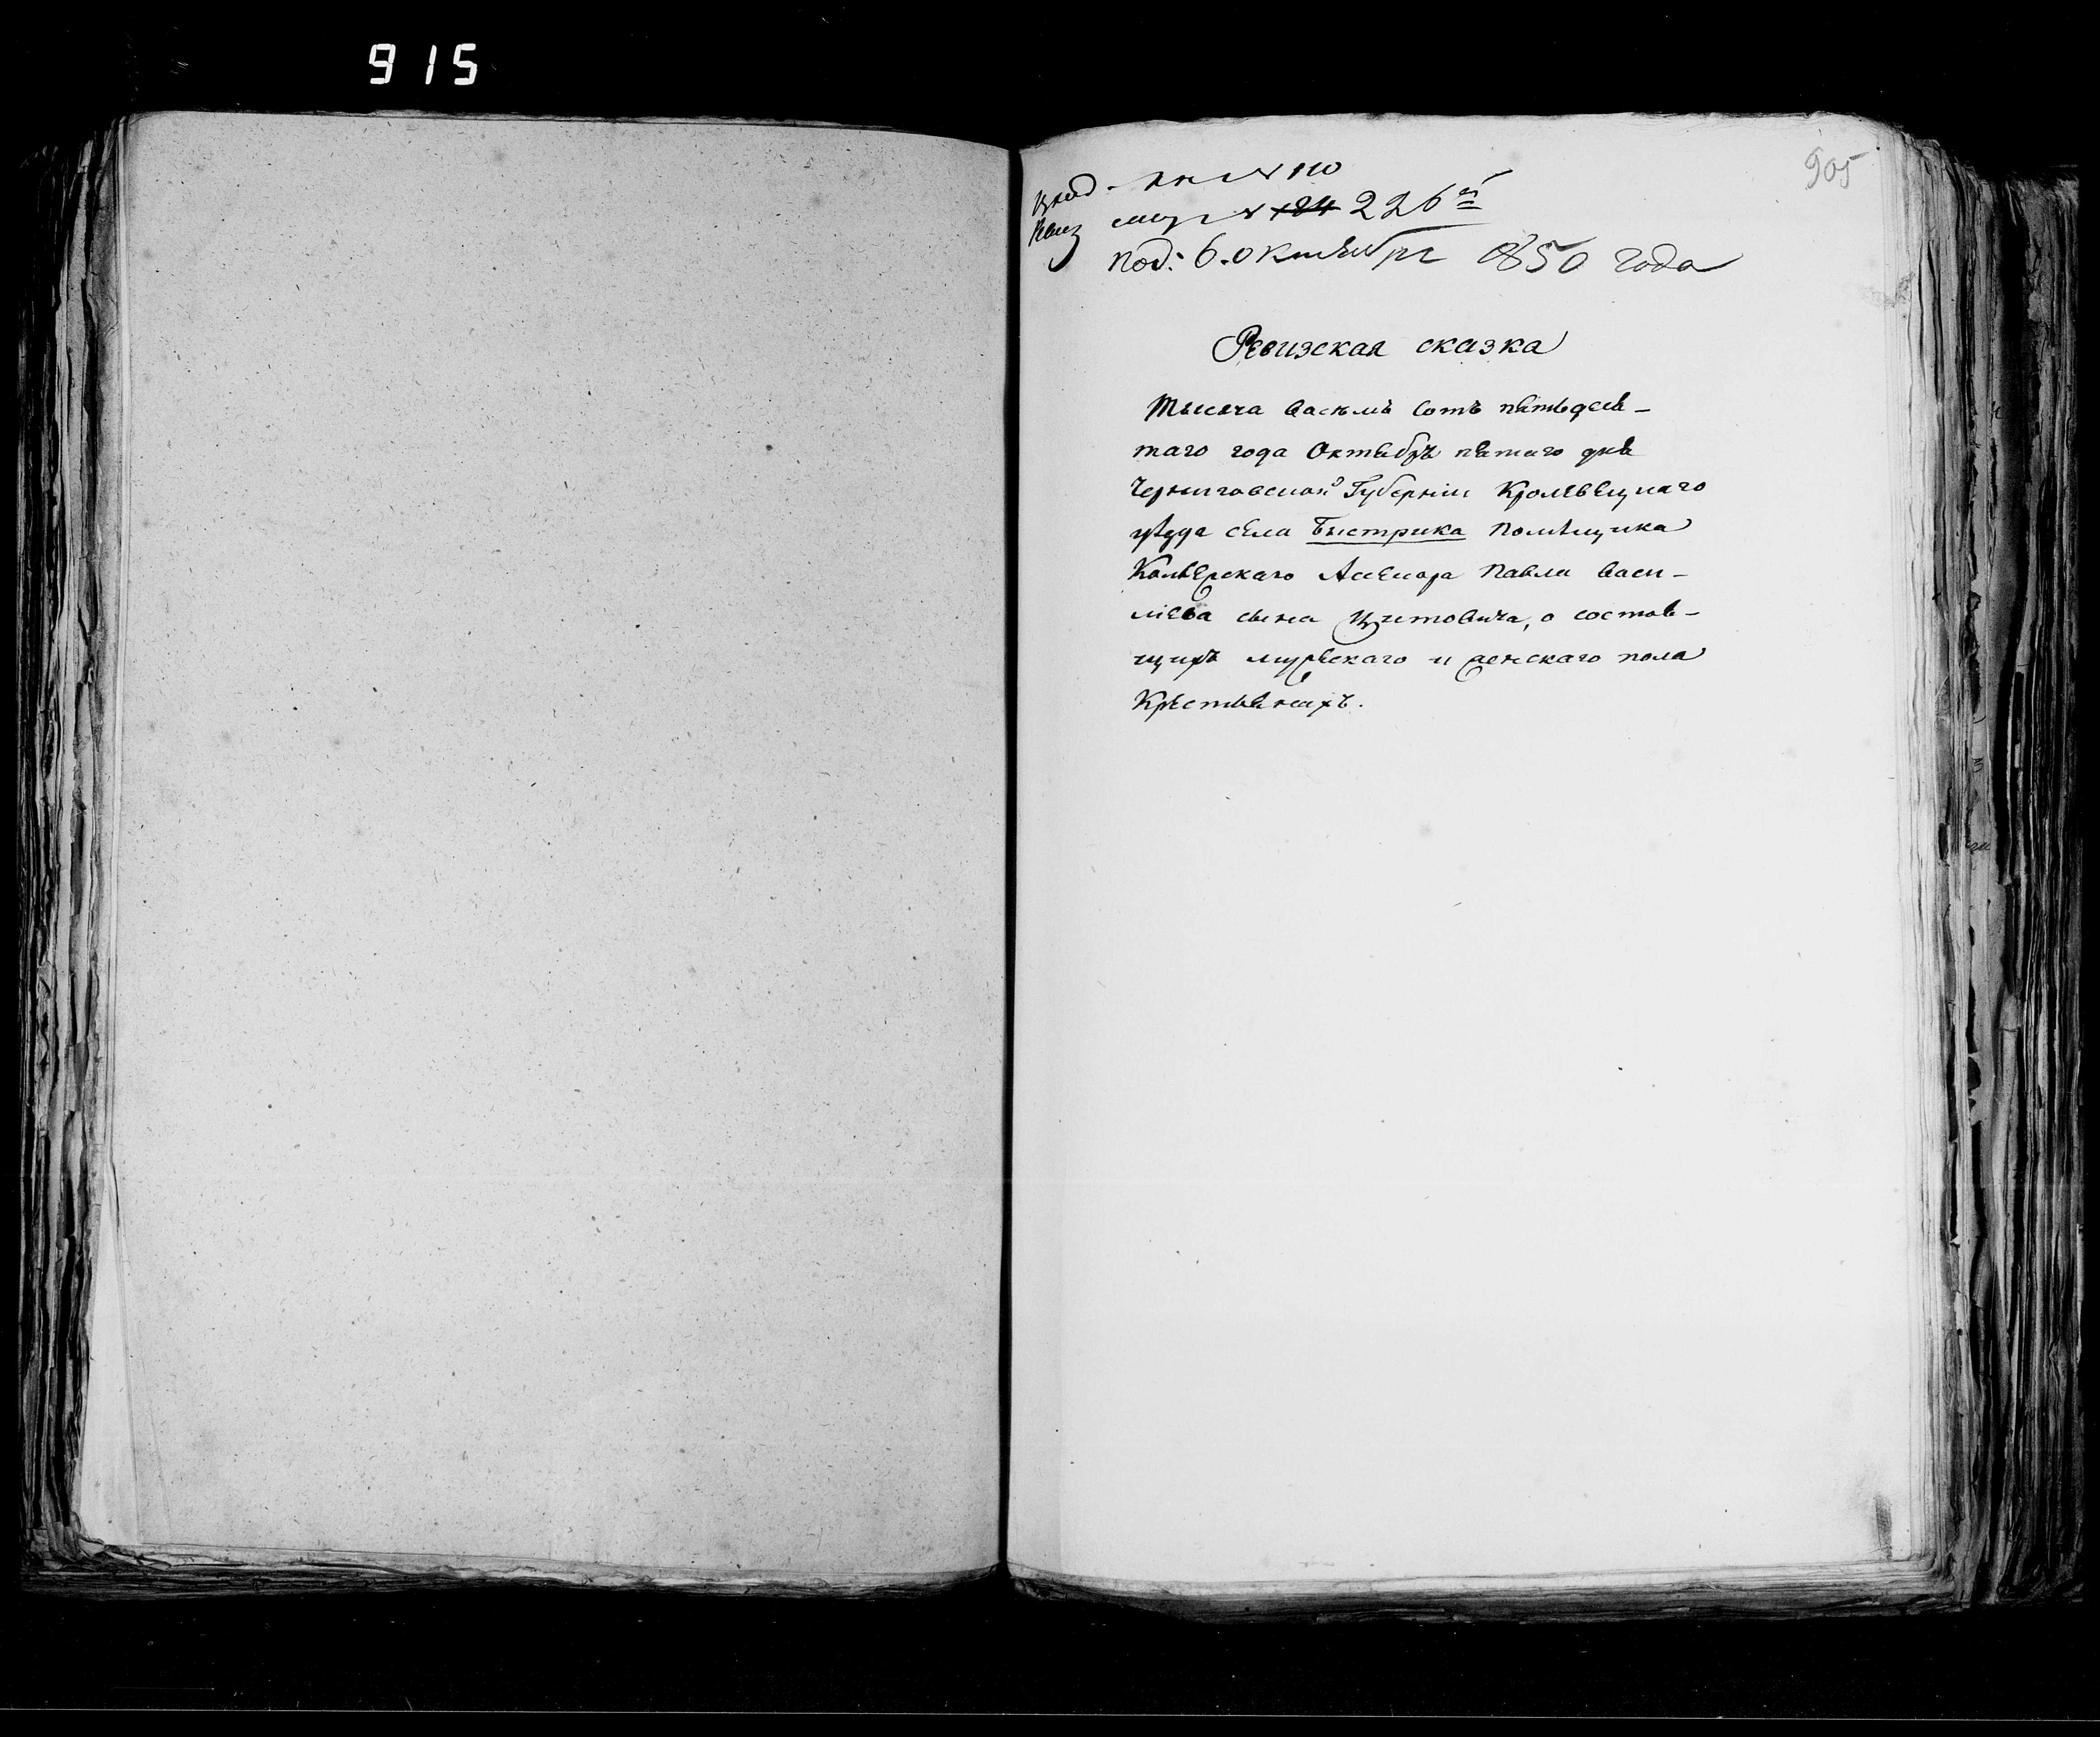 915
905
№ 110
№ 184 226й
под: 6. октября 1850 года
Ревизская сказка
Тысяча васѣмъ сотъ пятьдеся-
таго года Октября пятаго дня
Черниговской Губерніи Кролевецкаго
уѣзда села Быстрика Помѣщика
Колѣжскаго Ассесора Павла Васи-
лiева сына Цитовича, о состоя-
щихъ мужескаго и женскаго пола
Крестьянахъ.